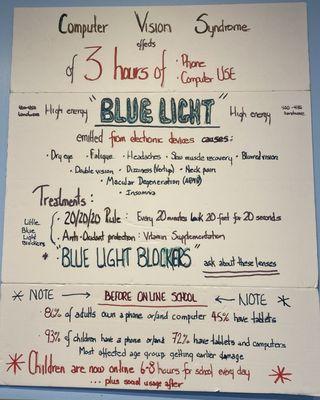 Computer Vision Syndrome
effects
of 3 hours of · Phone
· Computer USE
High energy "BLUE LIGHT" High energy
emitted from electronic devices causes:
· Dry eye · Fatigue · Headaches · Slow muscle recovery · Blurred vision
· Double vision · Dizziness (Vertigo) · Neck pain
· Macular Degeneration (ARMD)
· Insomnia
Treatments:
· 20/20/20 Rule: Every 20 minutes look 20 feet for 20 seconds
· Anti-Oxidant protection: Vitamin Supplementation
Little Blue Light Blockers
* · "BLUE LIGHT BLOCKERS" ask about these lenses
* NOTE → BEFORE ONLINE SCHOOL ← NOTE *
· 86% of adults own a phone or/and computer 45% have tablets
· 93% of children have a phone or/and 72% have tablets and computers
Most affected age group getting earlier damage
* Children are now online 6-8 hours for school every day *
... plus social usage after